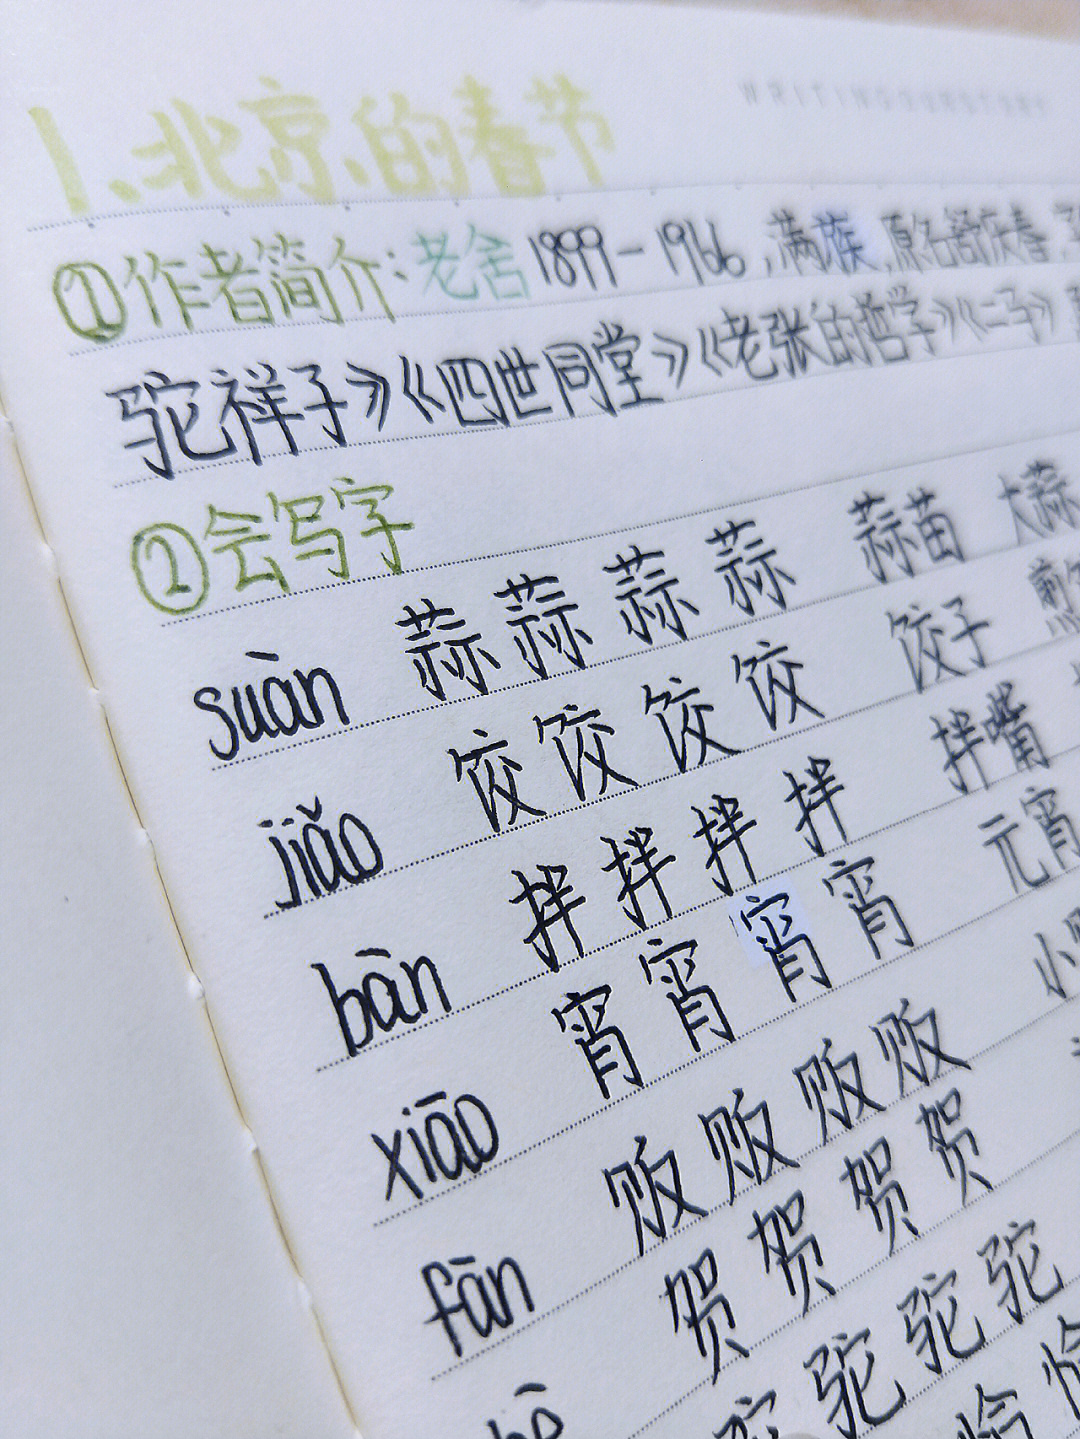 1、北京的春节
①作者简介:老舍 1899-1966,满族,原名舒庆春,
驼祥子》《四世同堂》《老张的哲学》《二子》
②会写字
suàn 蒜 蒜 蒜 蒜 蒜苗 大蒜
jiǎo 饺 饺 饺 饺 饺子 煎
bàn 拌 拌 拌 拌 拌嘴
xiāo 宵 宵 宵 宵 元宵
fàn 贩 贩 贩 贩 小
贺 贺 贺 贺
驼 驼 驼 驼
恰 恰